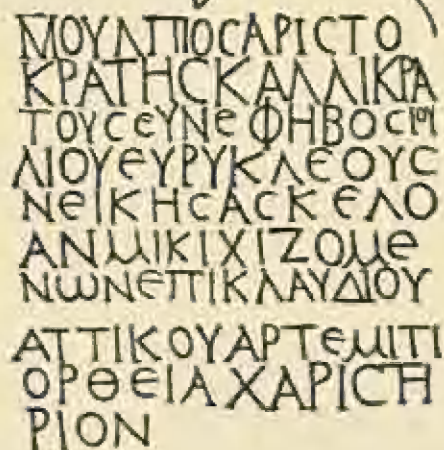 ΜΟΥΛΠΙΟϹΑΡΙϹΤΟ
ΚΡΑΤΗϹΚΑΛΛΙΚΡΑ
ΤΟΥϹΕΥΝΕΦΗΒΟϹΙΟΥ
ΛΙΟΥΕΥΡΥΚΛΕΟΥϹ
ΝΕΙΚΗϹΑϹΚΕΛΟ
ΑΝΜΙΚΙΧΙΖΟΜΕ
ΝΩΝΕΠΙΚΛΑΥΔΙΟΥ
ΑΤΤΙΚΟΥΑΡΤΕΜΙΤΙ
ΟΡΘΕΙΑΧΑΡΙϹΤΗ
ΡΙΟΝ